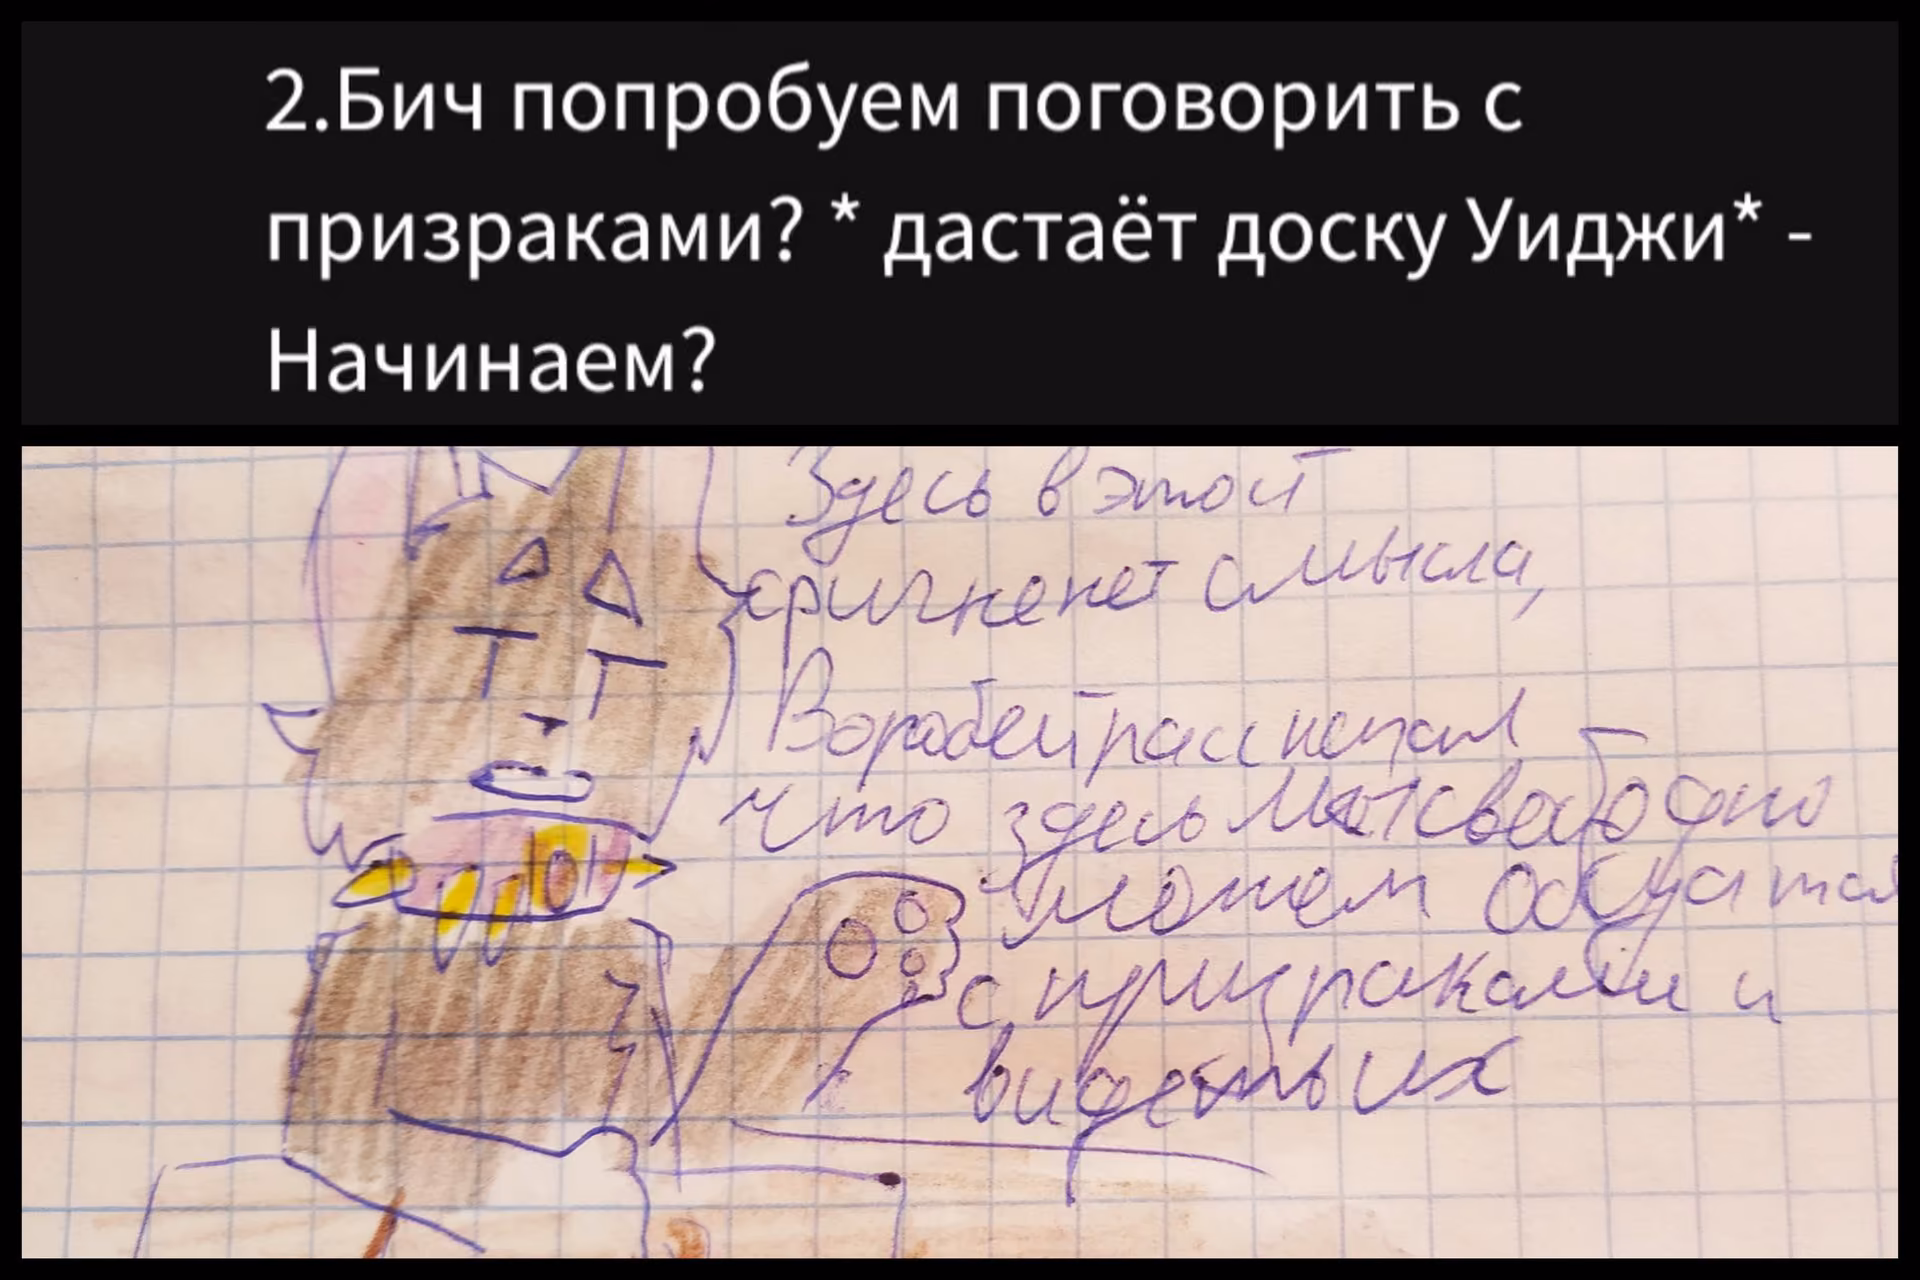 2.Бич попробуем поговорить с
призраками? * дастаёт доску Уиджи* -
Начинаем?
Здесь в этой
нет смысла,
Воробей
что здесь мы свободно
можем
с призраками и
видеть их